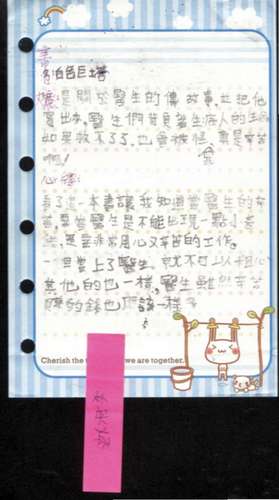 書名:白色巨塔
是關於醫生的傳故事,並把他
寫出來,醫生們背負著生病人的生
如果救不了了,也會被怪,真是辛苦
啊!
心得:
看了這一本書讓我知道當醫生的辛
苦,當醫生是不能出現一點小差
,是非常用心又辛苦的工作。
一但當上了醫生,就不可以粗心
其他的也一樣,醫生雖然辛苦
賺的錢也應該一樣多
Cherish the we are together.